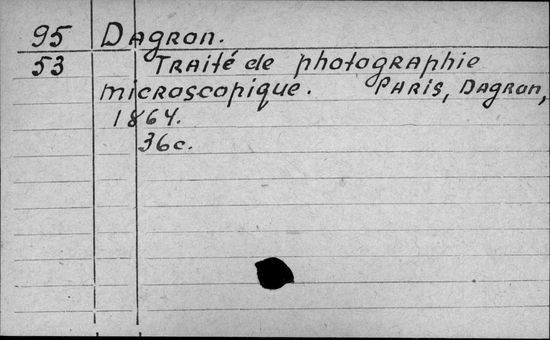 95 Dagron.
53 Traité de photographie
microscopique. Paris, Dagron,
1864.
36c.